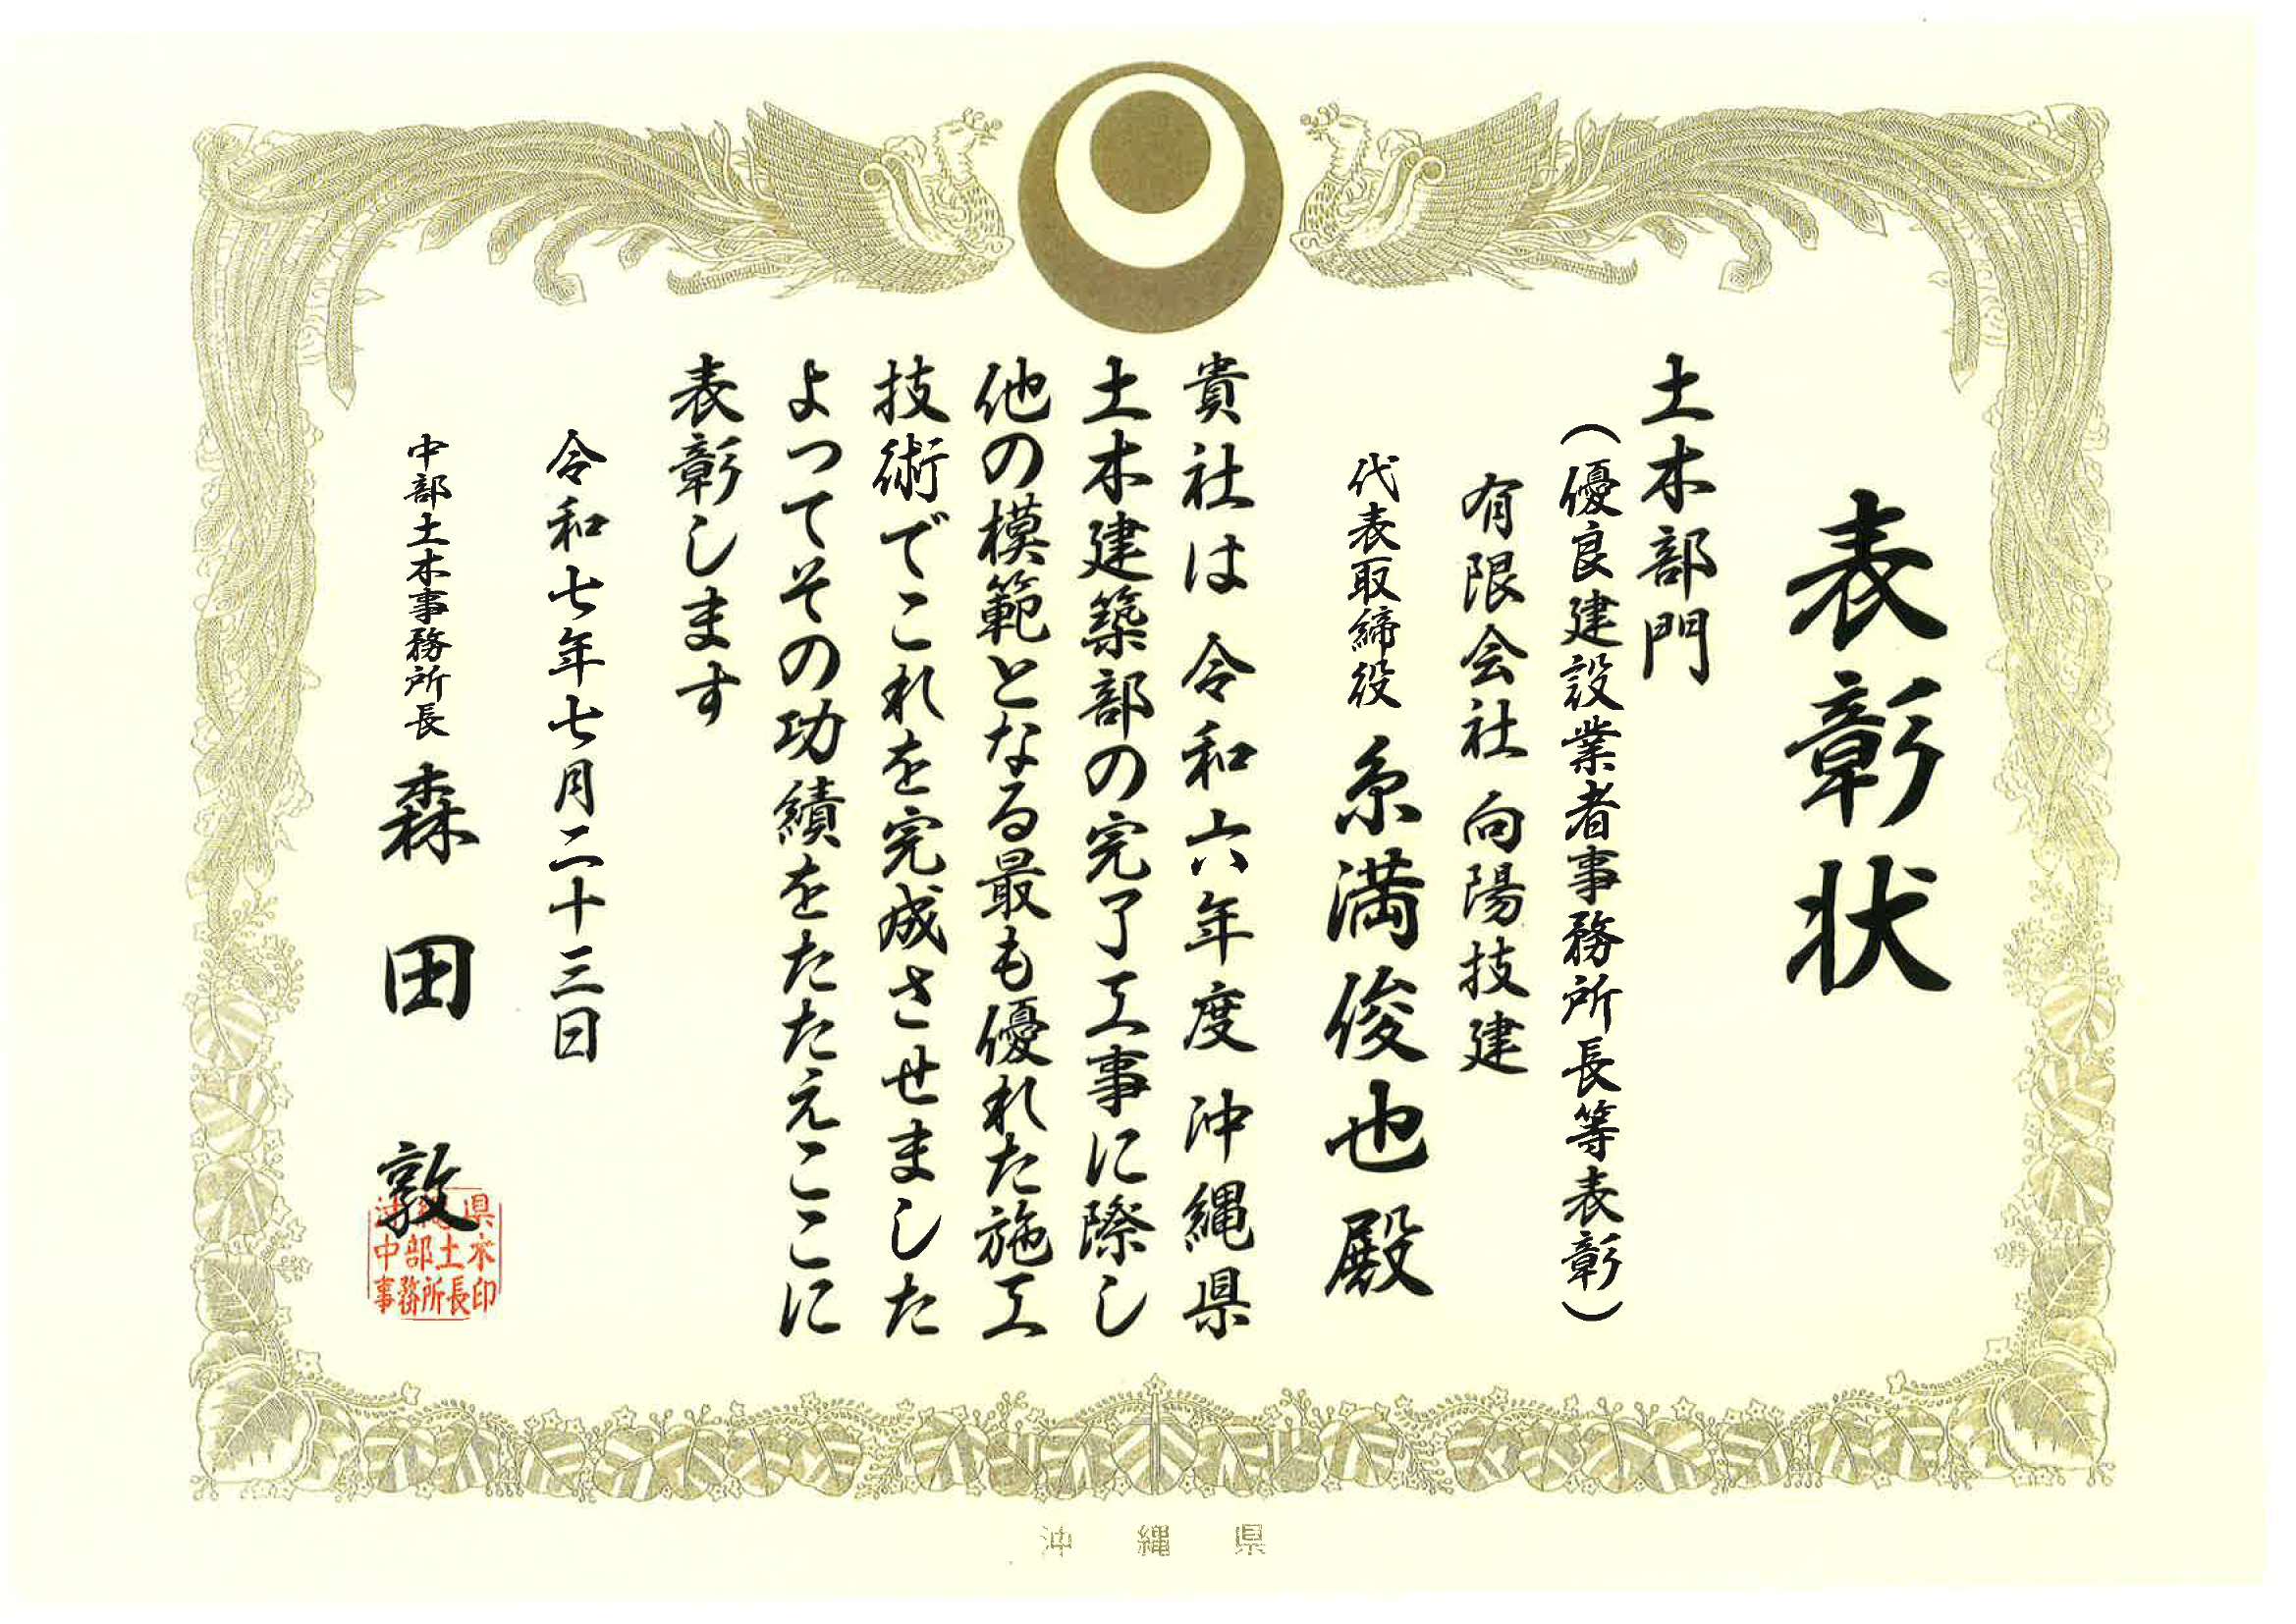 表彰状
土木部門
(優良建設業者事務所長等表彰)
有限会社 向陽技建
代表取締役 糸満俊也殿
貴社は 令和六年度 沖縄県
土木建築部の完了工事に際し
他の模範となる最も優れた施工
技術でこれを完成させました
よってその功績をたたえここに
表彰します
令和七年七月二十三日
中部土木事務所長 森田 敦
沖縄県
中部土木
事務所長印
沖縄県